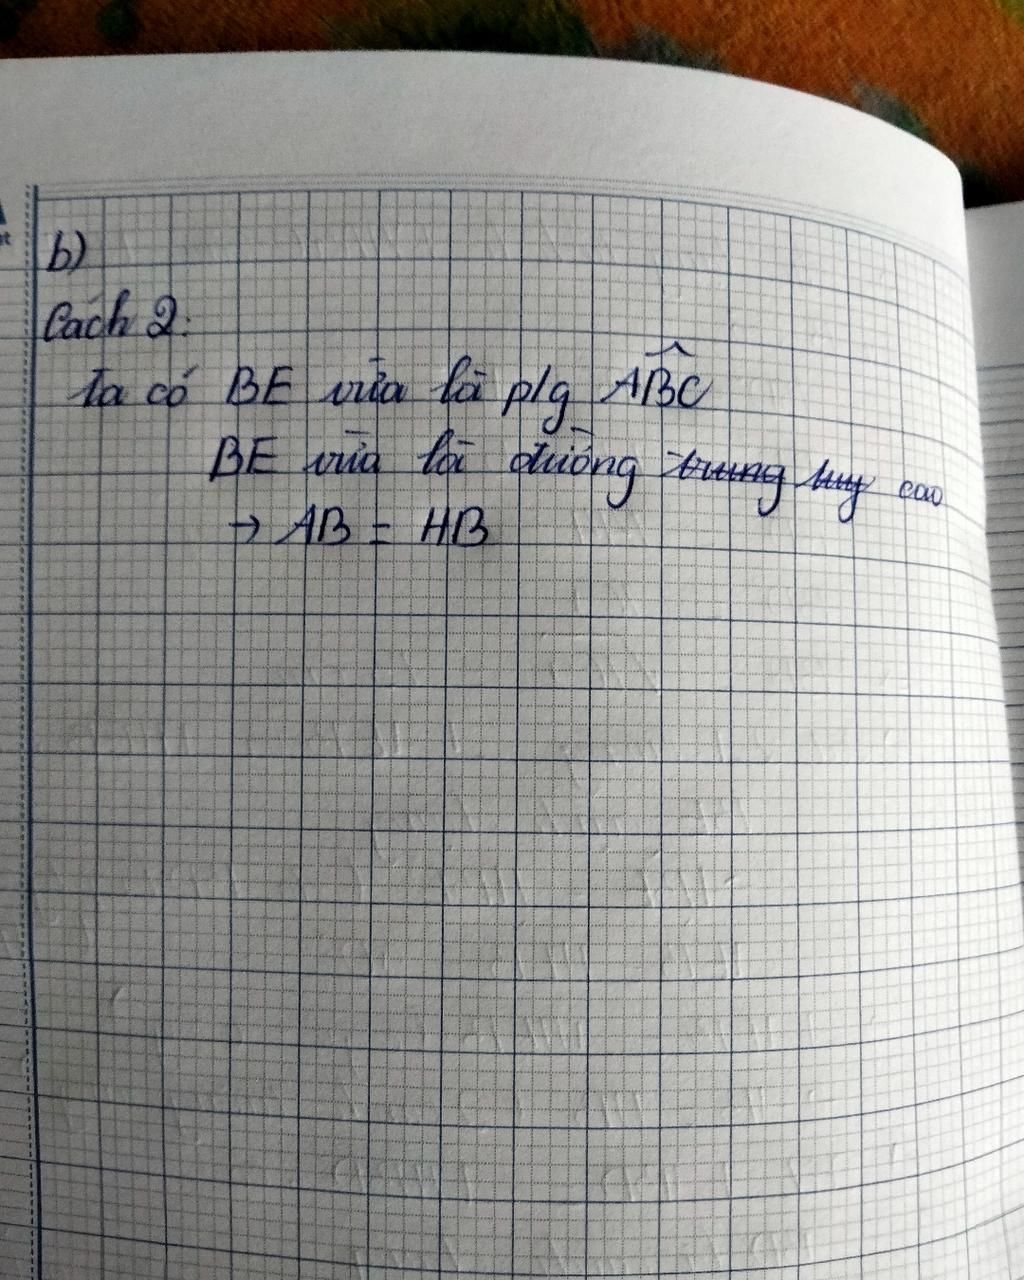 b)
Cách 2:
Ta có BE vừa là p/g ABC
BE vừa là đường trung tuy cao
→ AB = HB